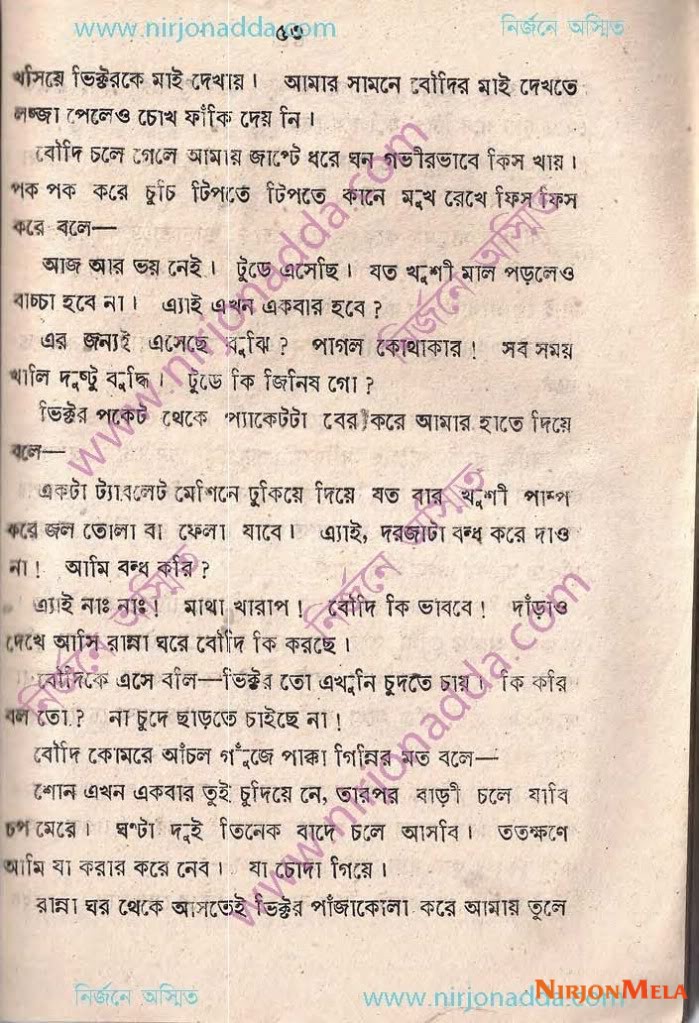 www.nirjonadda.com ৫৩ নির্জনে অস্মিত
খসিয়ে ভিক্টরকে মাই দেখায়। আমার সামনে বৌদির মাই দেখতে
লজ্জা পেলেও চোখ ফাঁকি দেয় নি।
বৌদি চলে গেলে আমায় জাপ্টে ধরে ঘন গভীরভাবে কিস খায়।
পক পক করে চুচি টিপতে টিপতে কানে মুখ রেখে ফিস ফিস
করে বলে—
আজ আর ভয় নেই। টুডে এসেছি। যত খুশী মাল পড়লেও
বাচ্চা হবে না। এ্যাই এখন একবার হবে?
এর জন্যই এসেছে বুঝি? পাগল কোথাকার! সব সময়
খালি দুষ্টু বুদ্ধি। টুডে কি জিনিষ গো?
ভিক্টর পকেট থেকে প্যাকেটটা বের করে আমার হাতে দিয়ে
বলে—
একটা ট্যাবলেট মেশিনে ঢুকিয়ে দিয়ে যত বার খুশী পাম্প
করে জল তোলা বা ফেলা যাবে। এ্যাই, দরজাটা বন্ধ করে দাও
না! আমি বন্ধ করি?
এ্যাই নাঃ নাঃ! মাথা খারাপ! বৌদি কি ভাববে! দাঁড়াও
দেখে আসি রান্না ঘরে বৌদি কি করছে।
বৌদিকে এসে বলি—ভিক্টর তো এখুনি চুদতে চায়। কি করি
বল তো? না চুদে ছাড়তে চাইছে না!
বৌদি কোমরে আঁচল গুঁজে পাক্কা গিন্নির মত বলে—
শোন এখন একবার তুই চুদিয়ে নে, তারপর বাড়ী চলে যাবি
চুপ মেরে। ঘণ্টা দুই তিনেক বাদে চলে আসবি। ততক্ষণে
আমি যা করার করে নেব। যা চোদা গিয়ে।
রান্না ঘর থেকে আসতেই ভিক্টর পাঁজাকোলা করে আমায় তুলে
www.nirjonadda.com
নির্জনে অস্মিত
www.nirjonadda.com
নির্জনে অস্মিত
নির্জনে অস্মিত
নির্জনে অস্মিত www.nirjonadda.com
NIRJONMELA